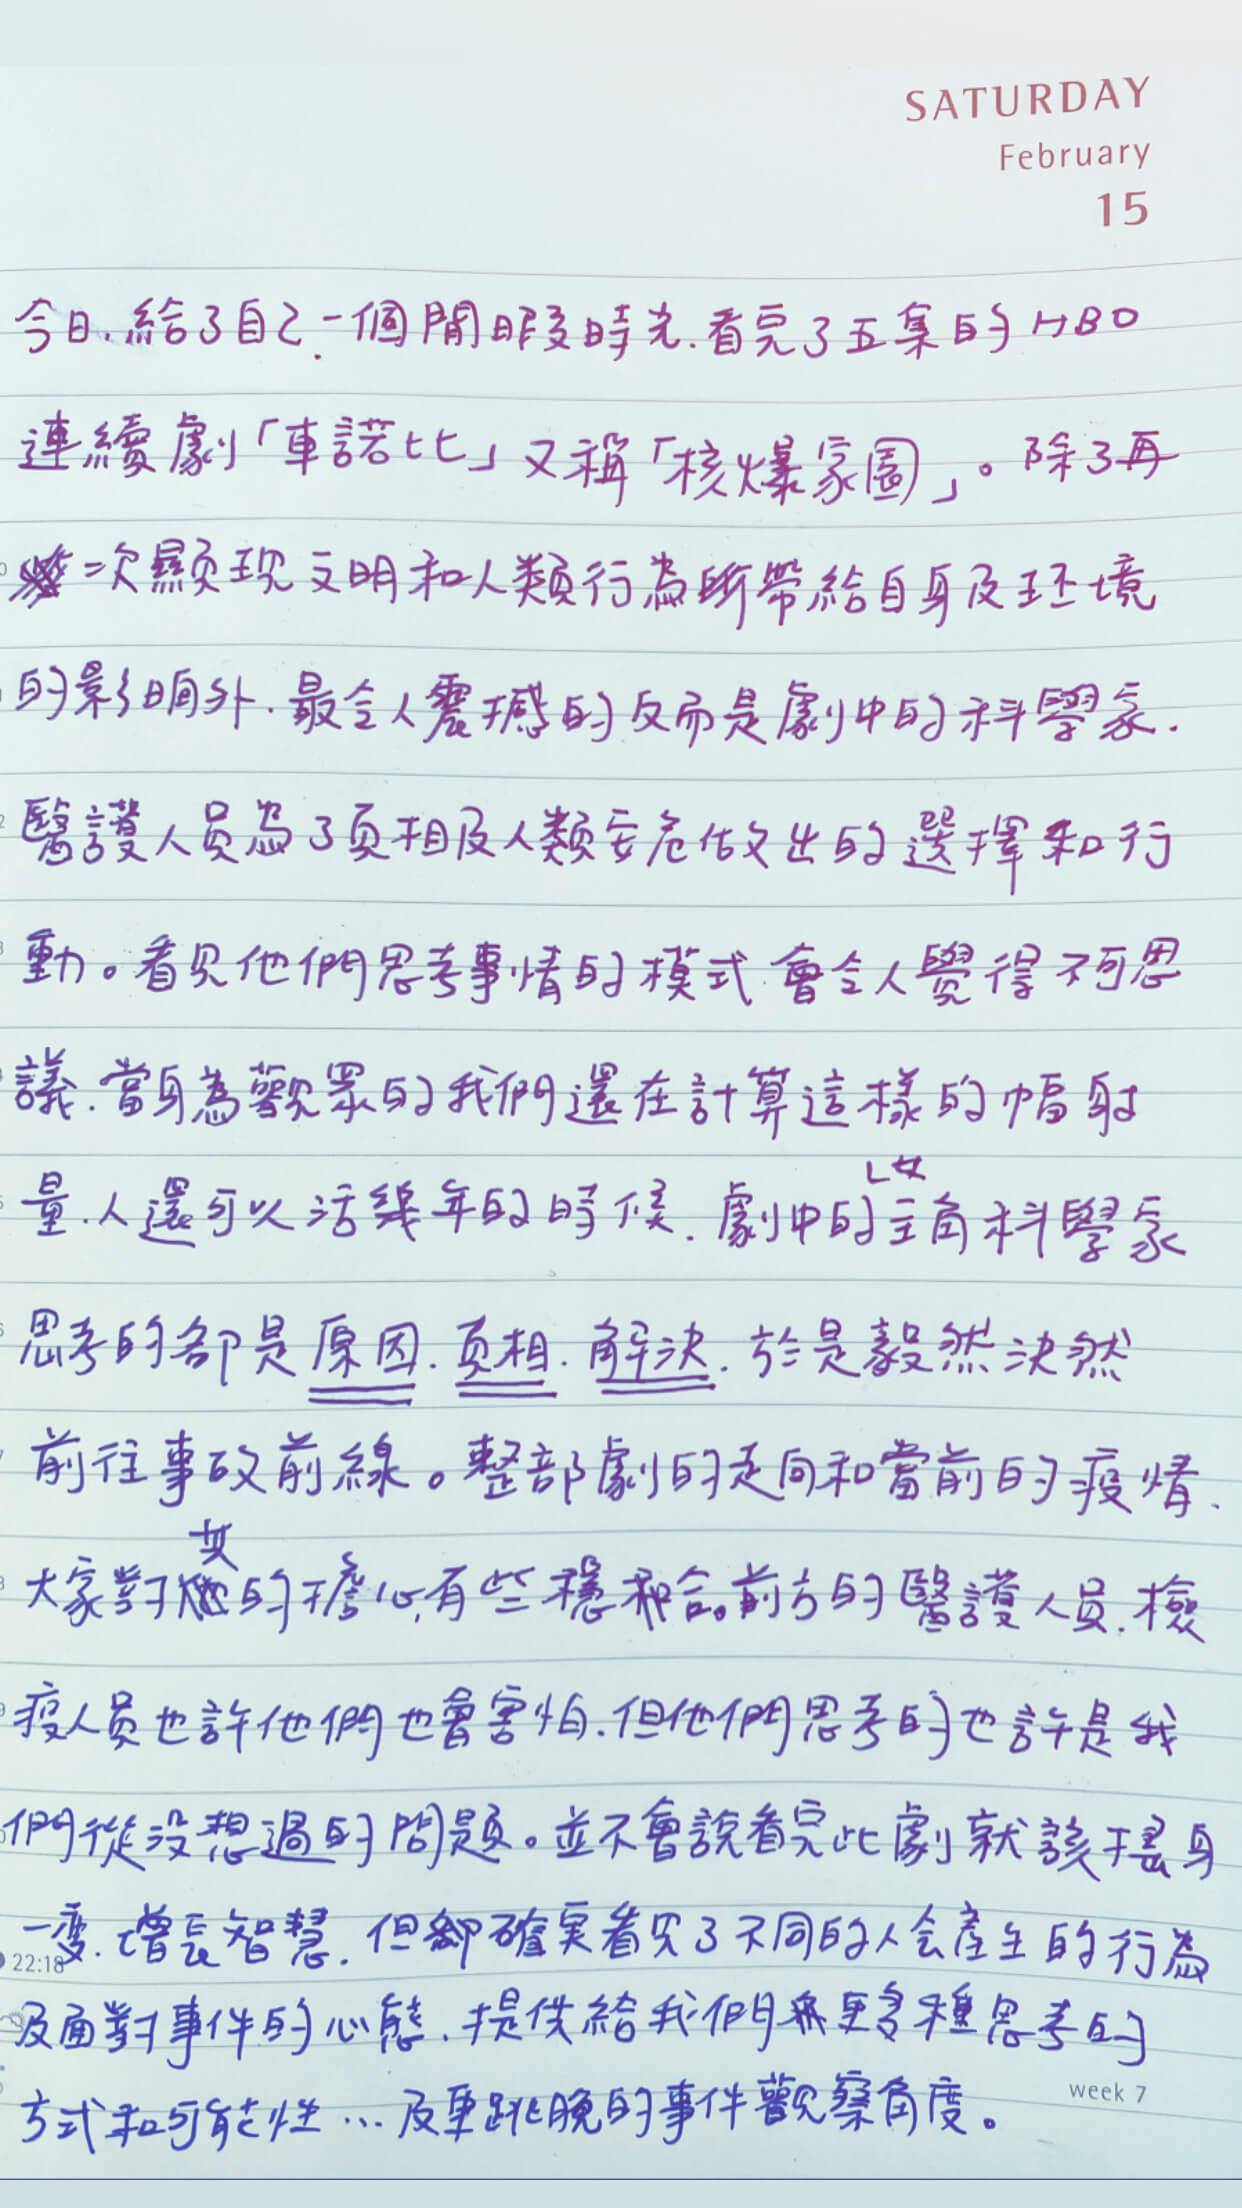 SATURDAY
February
15
今日.給了自己一個閒暇時光.看完了五集的HBO
連續劇「車諾比」又稱「核爆家園」。除了再
一次顯現文明和人類行為所帶給自身及环境
的影响外.最令人震撼的反而是劇中的科學家.
醫護人員為了真相及人類安危做出的選擇和行
動。看見他們思考事情的模式會令人覺得不可思
議.當身為觀眾的我們還在計算這樣的幅射
量.人還可以活幾年的時候.劇中的女主角科學家
思考的都是原因.真相.解決.於是毅然決然
前往事故前線。整部劇的走向和當前的疫情.
大家對她的擔心,有些穩和合。前方的醫護人員.檢
疫人員也許他們也會害怕.但他們思考的也許是我
們從沒想過的問題。並不會說看完此劇就該搖身
一變.增長智慧.但卻確實看見了不同的人会產生的行為
22:18
及面對事件的心態.提供給我們更多種思考的
方式和可能性…及更跳脫的事件觀察角度。
week 7